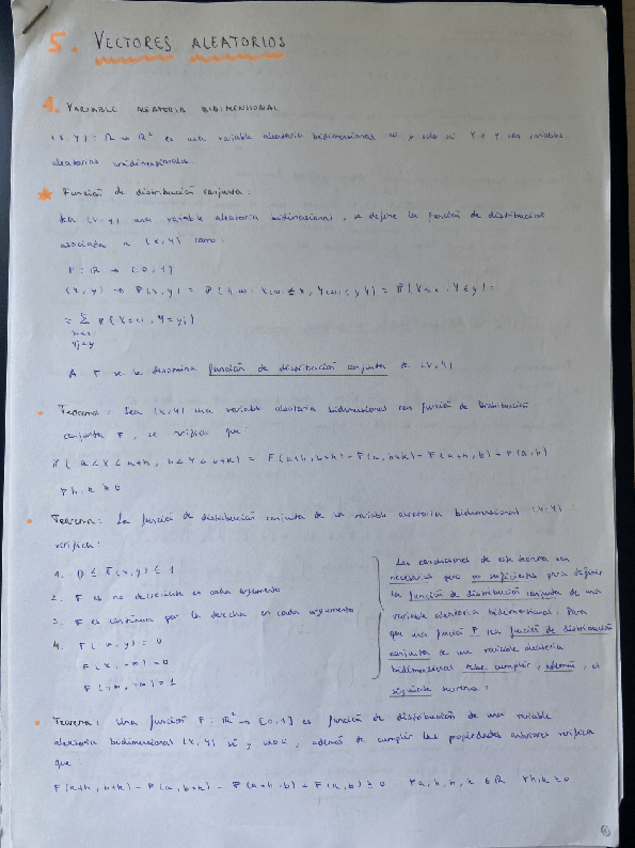 5. VECTORES ALEATORIOS
1. VARIABLE ALEATORIA BIDIMENSIONAL
(X, Y) : Ω → ℝ² es una variable aleatoria bidimensional si y solo si X e Y son variables
aleatorias unidimensionales.
Función de distribución conjunta:
Sea (X, Y) una variable aleatoria bidimensional, se define la función de distribución
asociada a (X, Y) como:
(x, y) → F(x, y) = P{ω: X(ω) ≤ x, Y(ω) ≤ y} = P{X ≤ x, Y ≤ y} =
A F se le denomina función de distribución conjunta de (X, Y)
Teorema: Sea (X, Y) una variable aleatoria bidimensional con función de distribución
conjunta F, se verifica que:
P{a < X ≤ a+h, b < Y ≤ b+k} = F(a+h, b+k) - F(a, b+k) - F(a+h, b) + F(a, b)
∀h, k ≥ 0
Teorema: La función de distribución conjunta de la variable aleatoria bidimensional (X, Y)
verifica:
1. 0 ≤ F(x, y) ≤ 1
2. F es no decreciente en cada argumento
3. F es continua por la derecha en cada argumento
4. F(-∞, y) = 0
F(x, -∞) = 0
F(+∞, +∞) = 1
Las condiciones de este teorema son
necesarias pero no suficientes para definir
la función de distribución conjunta de una
variable aleatoria bidimensional. Para
que una función F sea función de distribución
conjunta de una variable aleatoria
bidimensional debe cumplir, además, el
siguiente teorema:
Teorema: Una función F: ℝ² → [0, 1] es función de distribución de una variable
aleatoria bidimensional (X, Y) si y solo si, además de cumplir las propiedades anteriores verifica
que:
F(a+h, b+k) - F(a, b+k) - F(a+h, b) + F(a, b) ≥ 0 ∀a, b, h, k ∈ ℝ ∀h, k ≥ 0